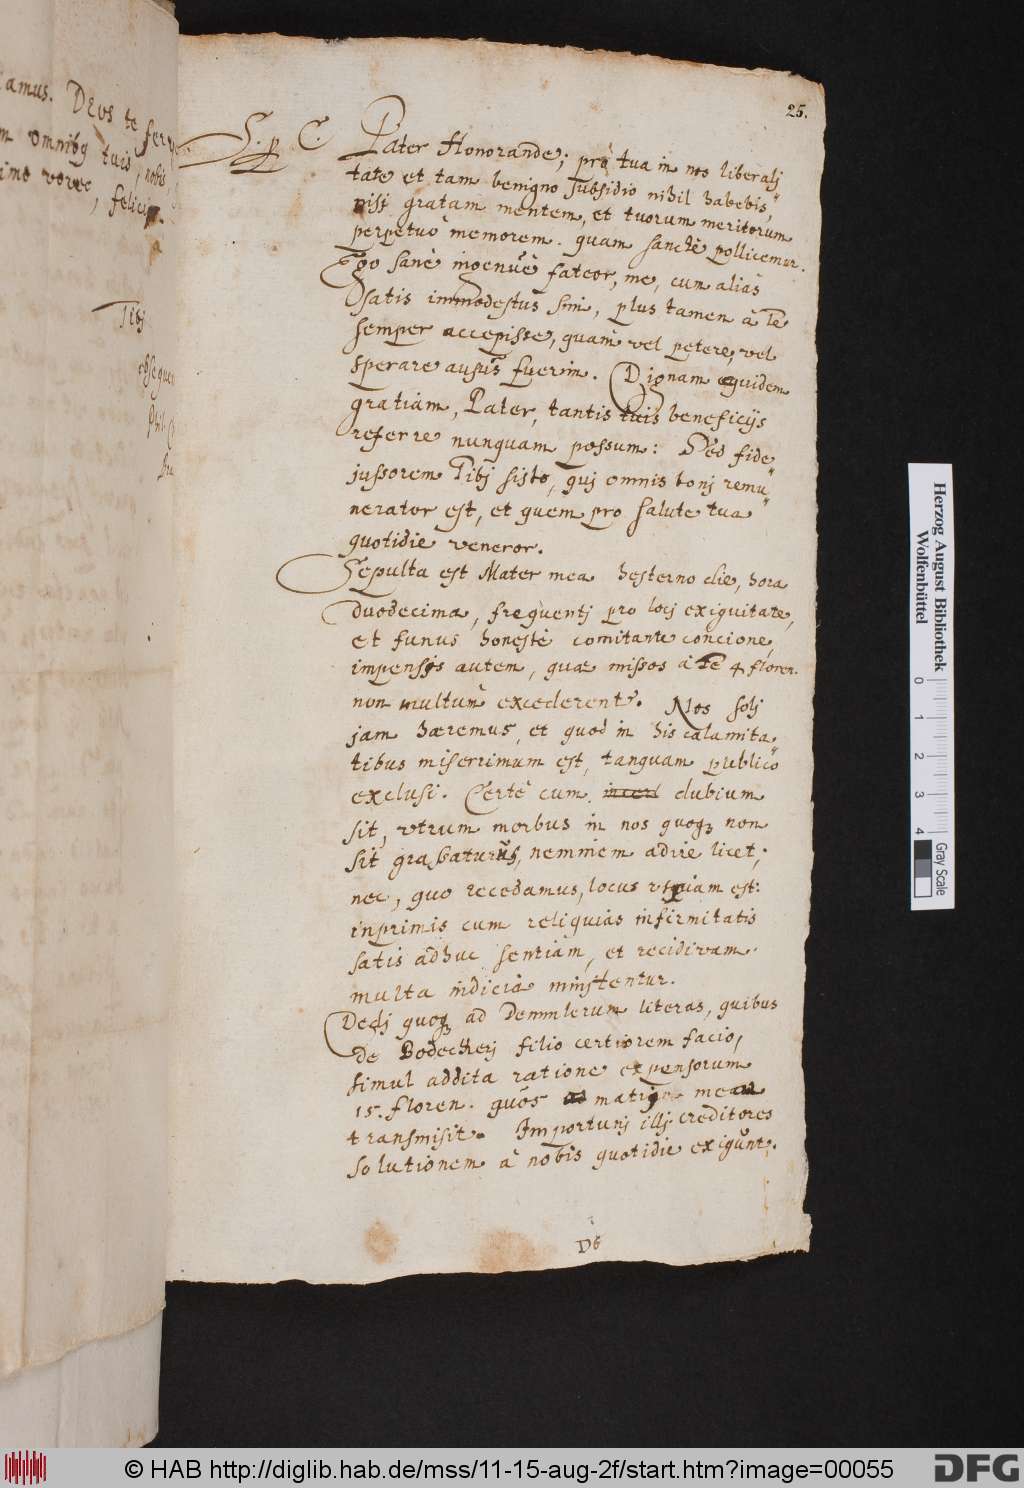 25.
S. P. C. Pater Honorande; pro tua in nos liberali„
tate et tam benigno subsidio nihil habebis,
nisi gratam mentem, et tuorum meritorum
perpetuò memorem. quam sanctè pollicemur.
Ego sanè ingenuè fateor, me, cum aliàs
satis immodestus sim, plus tamen à Te
semper accepisse, quàm vel petere, vel
sperare ausus fuerim. Dignam equidem
gratiam, Pater, tantis tuis beneficijs
referre nunquam possum: Sed fide
jussorem Tibj sisto, quj omnis bonj remu„
nerator est, et quem pro salute tua
quotidie veneror.
Sepulta est Mater mea hesterno die, hora
duodecima, frequentj pro locj exiguitate,
et funus honestè comitante concione,
impensis autem, quae missos à Te 4 floren.
non multum excederent. Nos solj
jam haeremus, et quod in his calamita„
tibus miserrimum est, tanquam publico
exclusi. Certè cum incert dubium
sit, utrum morbus in nos quoq; non
sit grassaturus, neminem adire licet;
nec, quo recedamus, locus usquam est:
inprimis cum reliquias infirmitatis
satis adhuc sentiam, et recidivam
multa indicia minitentur.
Dedj quoq; ad Demmlerum literas, quibus
de Bodeckerj filio certiorem facio,
simul addita ratione expensorum
15. floren. quos matri meae
transmisit. Importunj illj creditores
solutionem à nobis quotidie exigunt.
De
amus. Deus te
omnibq tuis, nobis,
felici
Tibj
Herzog August Bibliothek
Wolfenbüttel
0 1 2 3 4
Gray Scale
© HAB http://diglib.hab.de/mss/11-15-aug-2f/start.htm?image=00055
DFG